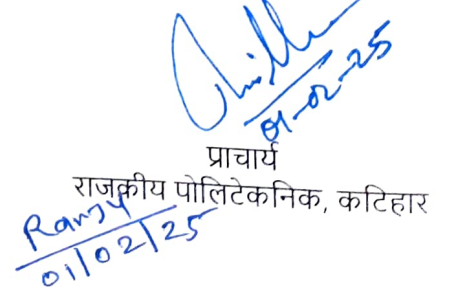 01-02-25
प्राचार्य
राजकीय पोलिटेकनिक, कटिहार
01/02/25